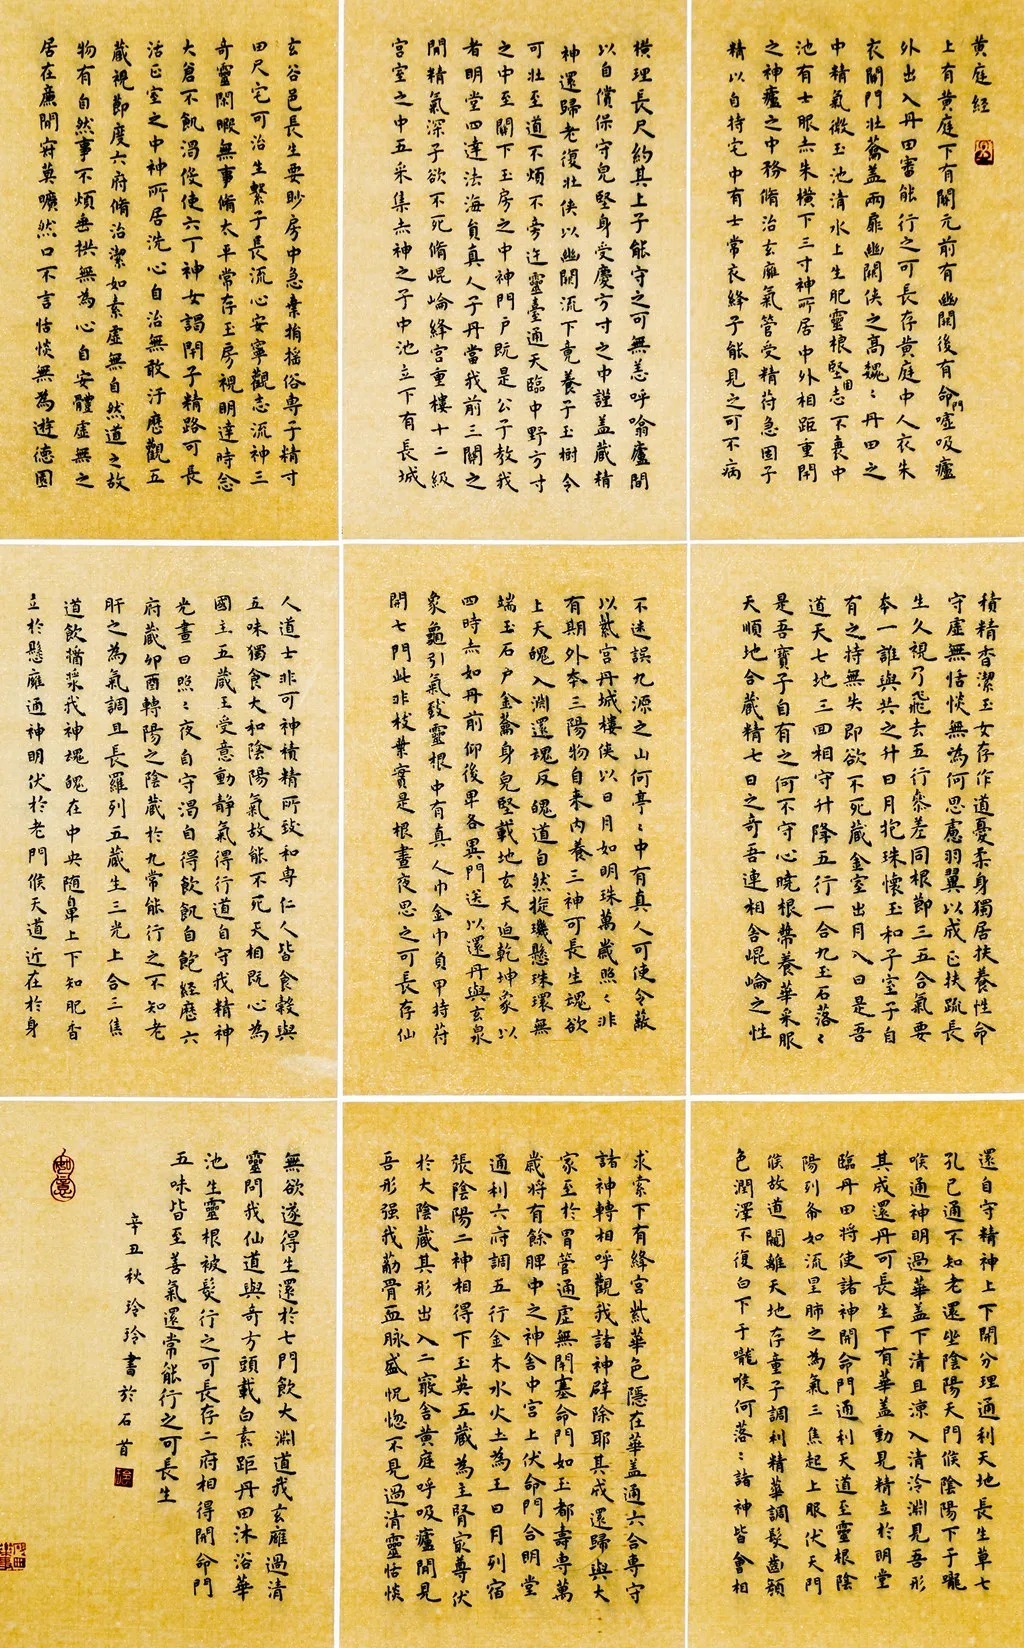 黄庭经
上有黄庭下有關元前有幽闕後有命門噓吸廬
外出入丹田審能行之可長存黄庭中人衣朱
衣關門壯蘥蓋兩扉幽闕俠之高巍〻丹田之
中精氣微玉池清水上生肥靈根堅志不衰中
池有士服赤朱横下三寸神所居中外相距重閉
之神廬之中務脩治玄膺氣管受精符急固子
精以自持宅中有士常衣絳子能見之可不病
横理長尺約其上子能守之可無恙呼噏廬間
以自償保守皃堅身受慶方寸之中謹蓋藏精
神還歸老復壯俠以幽闕流下竟養子玉樹令
可壯至道不煩不旁迕靈臺通天臨中野方寸
之中至關下玉房之中神門户既是公子教我
者明堂四達法海員真人子丹當我前三關之
間精氣深子欲不死脩崐崘絳宫重樓十二級
宫室之中五采集赤神之子中池立下有長城
玄谷邑長生要眇房中急棄捐摇俗専子精寸
田尺宅可治生繫子長流心安寧觀志流神三
奇靈閑暇無事脩太平常存玉房視明達時念
大倉不飢渴役使六丁神女謁閉子精路可長
活正室之中神所居洗心自治無敢汙歷觀五
藏視節度六府脩治潔如素虚無自然道之故
物有自然事不煩垂拱無為心自安體虚無之
居在廉間寂莫曠然口不言恬惔無為遊德園
積精香潔玉女存作道憂柔身獨居扶養性命
守虚無恬惔無為何思慮羽翼以成正扶疏長
生久視乃飛去五行叅差同根節三五合氣要
本一誰與共之升日月抱珠懷玉和子室子自
有之持無失即欲不死藏金室出月入日是吾
道天七地三回相守升降五行一合九玉石落〻
是吾寶子自有之何不守心曉根蔕養華采服
天順地合藏精七日之奇吾連相舍崐崘之性
不迷誤九源之山何亭〻中有真人可使令蔽
以紫宫丹城樓俠以日月如明珠萬歲照〻非
有期外本三陽物自来内養三神可長生魂欲
上天魄入淵還魂反魄道自然挻璣懸珠環無
端玉石户金蘥身皃堅載地玄天迫乾坤象以
四時赤如丹前仰後卑各異門送以還丹與玄泉
象龜引氣致靈根中有真人巾金巾負甲持符
開七門此非枝葉實是根晝夜思之可長存仙
人道士非可神積精所致和専仁人皆食穀與
五味獨食大和陰陽氣故能不死天相既心為
國主五藏王受意動静氣得行道自守我精神
光晝日照〻夜自守渴自得飲飢自飽經歷六
府藏卯酉轉陽之陰藏於九常能行之不知老
肝之為氣調且長羅列五藏生三光上合三焦
道飲醬漿我神魂魄在中央随鼻上下知肥香
立於懸膺通神明伏於老門候天道近在於身
還自守精神上下開分理通利天地長生草七
孔已通不知老還坐陰陽天門候陰陽下于嚨
喉通神明過華盖下清且凉入清泠淵見吾形
其成還丹可長生下有華盖動見精立於明堂
臨丹田將使諸神開命門通利天道至靈根陰
陽列布如流星肺之為氣三焦起上服伏天門
候故道闚離天地存童子調利精華調髮齒顏
色潤澤不復白下于嚨喉何落〻諸神皆會相
求索下有絳宫紫華色隱在華盖通六合専守
諸神轉相呼觀我諸神辟除耶其成還歸與大
家至於胃管通虚無閉塞命門如玉都壽専萬
歲將有餘脾中之神舍中宫上伏命門合明堂
通利六府調五行金木水火土為王日月列宿
張陰陽二神相得下玉英五藏為主腎㝡尊伏
於大陰藏其形出入二竅舍黄庭呼吸廬間見
吾形强我筋骨血脉盛怳惚不見過清靈恬惔
無欲遂得生還於七門飲大淵道我玄膺過清
靈問我仙道與奇方頭載白素距丹田沐浴華
池生靈根被髮行之可長存二府相得開命門
五味皆至善氣還常能行之可長生
辛丑秋玲玲書於石首